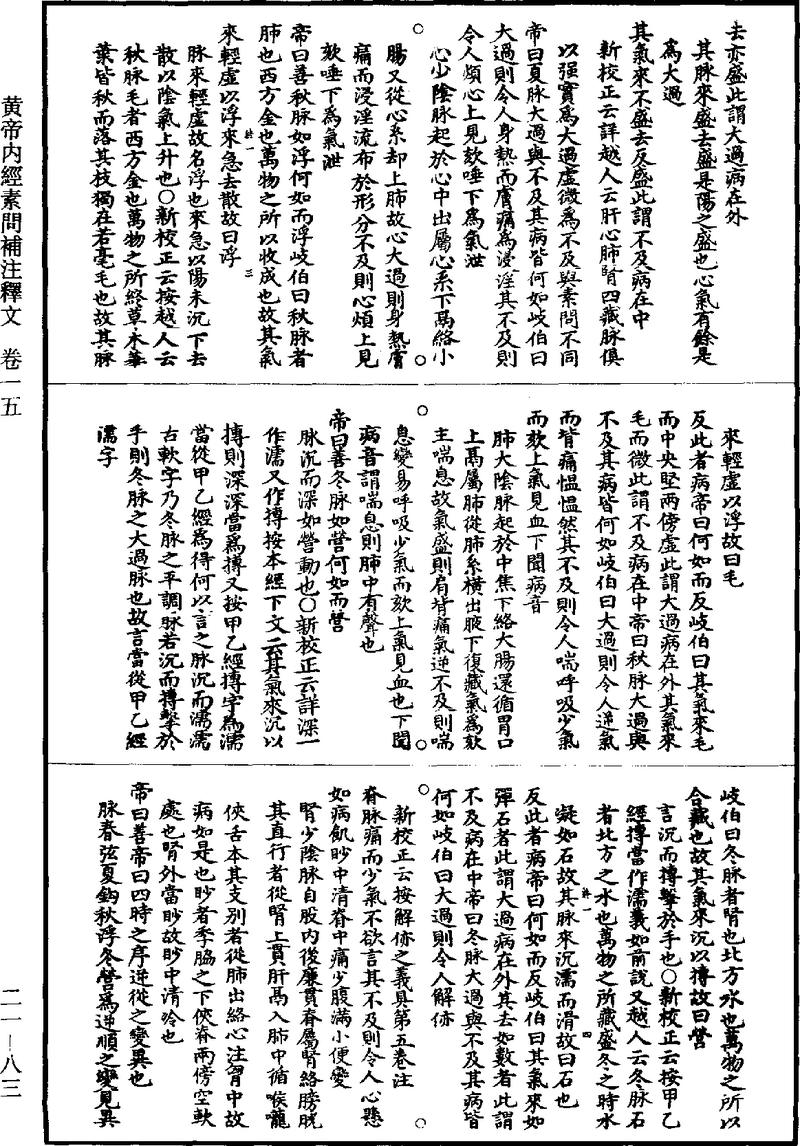 去亦盛此謂大過病在外
其脉來盛去盛是陽之盛也心氣有餘是
爲大過
其氣來不盛去反盛此謂不及病在中
新校正云詳越人云肝心肺腎四藏脉俱
以强實爲大過虛微爲不及與素問不同
帝曰夏脉大過與不及其病皆何如岐伯曰
大過則令人身熱而膚痛爲浸淫其不及則
令人煩心上見欬唾下爲氣泄
心少陰脉起於心中出屬心系下鬲絡小
腸又從心系却上肺故心大過則身熱膚
痛而浸淫流布於形分不及則心煩上見
欬唾下爲氣泄
帝曰善秋脉如浮何如而浮岐伯曰秋脉者
肺也西方金也萬物之所以收成也故其氣
來輕虛以浮來急去散故曰浮
脉來輕虛故名浮也來急以陽未沉下去
散以陰氣上升也○新校正云按越人云
秋脉毛者西方金也萬物之所終草木華
葉皆秋而落其枝獨在若毫毛也故其脉
來輕虛以浮故曰毛
反此者病帝曰何如而反岐伯曰其氣來毛
而中央堅兩傍虛此謂大過病在外其氣來
毛而微此謂不及病在中帝曰秋脉大過與
不及其病皆何如岐伯曰大過則令人逆氣
而背痛慍慍然其不及則令人喘呼吸少氣
而欬上氣見血下聞病音
肺大陰脉起於中焦下絡大腸還循胃口
上鬲屬肺從肺系橫出腋下復藏氣爲欬
主喘息故氣盛則肩背痛氣逆不及則喘
息變易呼吸少氣而欬上氣見血也下聞
病音謂喘息則肺中有聲也
帝曰善冬脉如營何如而營
脉沉而深如營動也○新校正云詳深一
作濡又作搏按本經下文云其氣來沉以
搏則深深當爲搏又按甲乙經搏字爲濡
當從甲乙經爲得何以言之脉沉而濡濡
古軟字乃冬脉之平調脉若沉而搏擊於
手則冬脉之大過脉也故言當從甲乙經
濡字
岐伯曰冬脉者腎也北方水也萬物之所以
合藏也故其氣來沉以搏故曰營
言沉而搏擊於手也○新校正云按甲乙
經搏當作濡義如前說又越人云冬脉石
者北方之水也萬物之所藏盛冬之時水
凝如石故其脉來沉濡而滑故曰石也
反此者病帝曰何如而反岐伯曰其氣來如
彈石者此謂大過病在外其去如數者此謂
不及病在中帝曰冬脉大過與不及其病皆
何如岐伯曰大過則令人解㑊
新校正云按解㑊之義具第五卷注
脊脉痛而少氣不欲言其不及則令人心懸
如病飢䏚中清脊中痛少腹滿小便變
腎少陰脉自股內後廉貫脊屬腎絡膀胱
其直行者從腎上貫肝鬲入肺中循喉嚨
俠舌本其支別者從肺出絡心注胷中故
病如是也䏚者季脇之下俠脊兩傍空軟
處也腎外當䏚故䏚中清冷也
帝曰善帝曰四時之序逆從之變異也
脉春弦夏鈎秋浮冬營爲逆順之變見異
黄帝内經素問補注釋文 卷一五
二一－八三